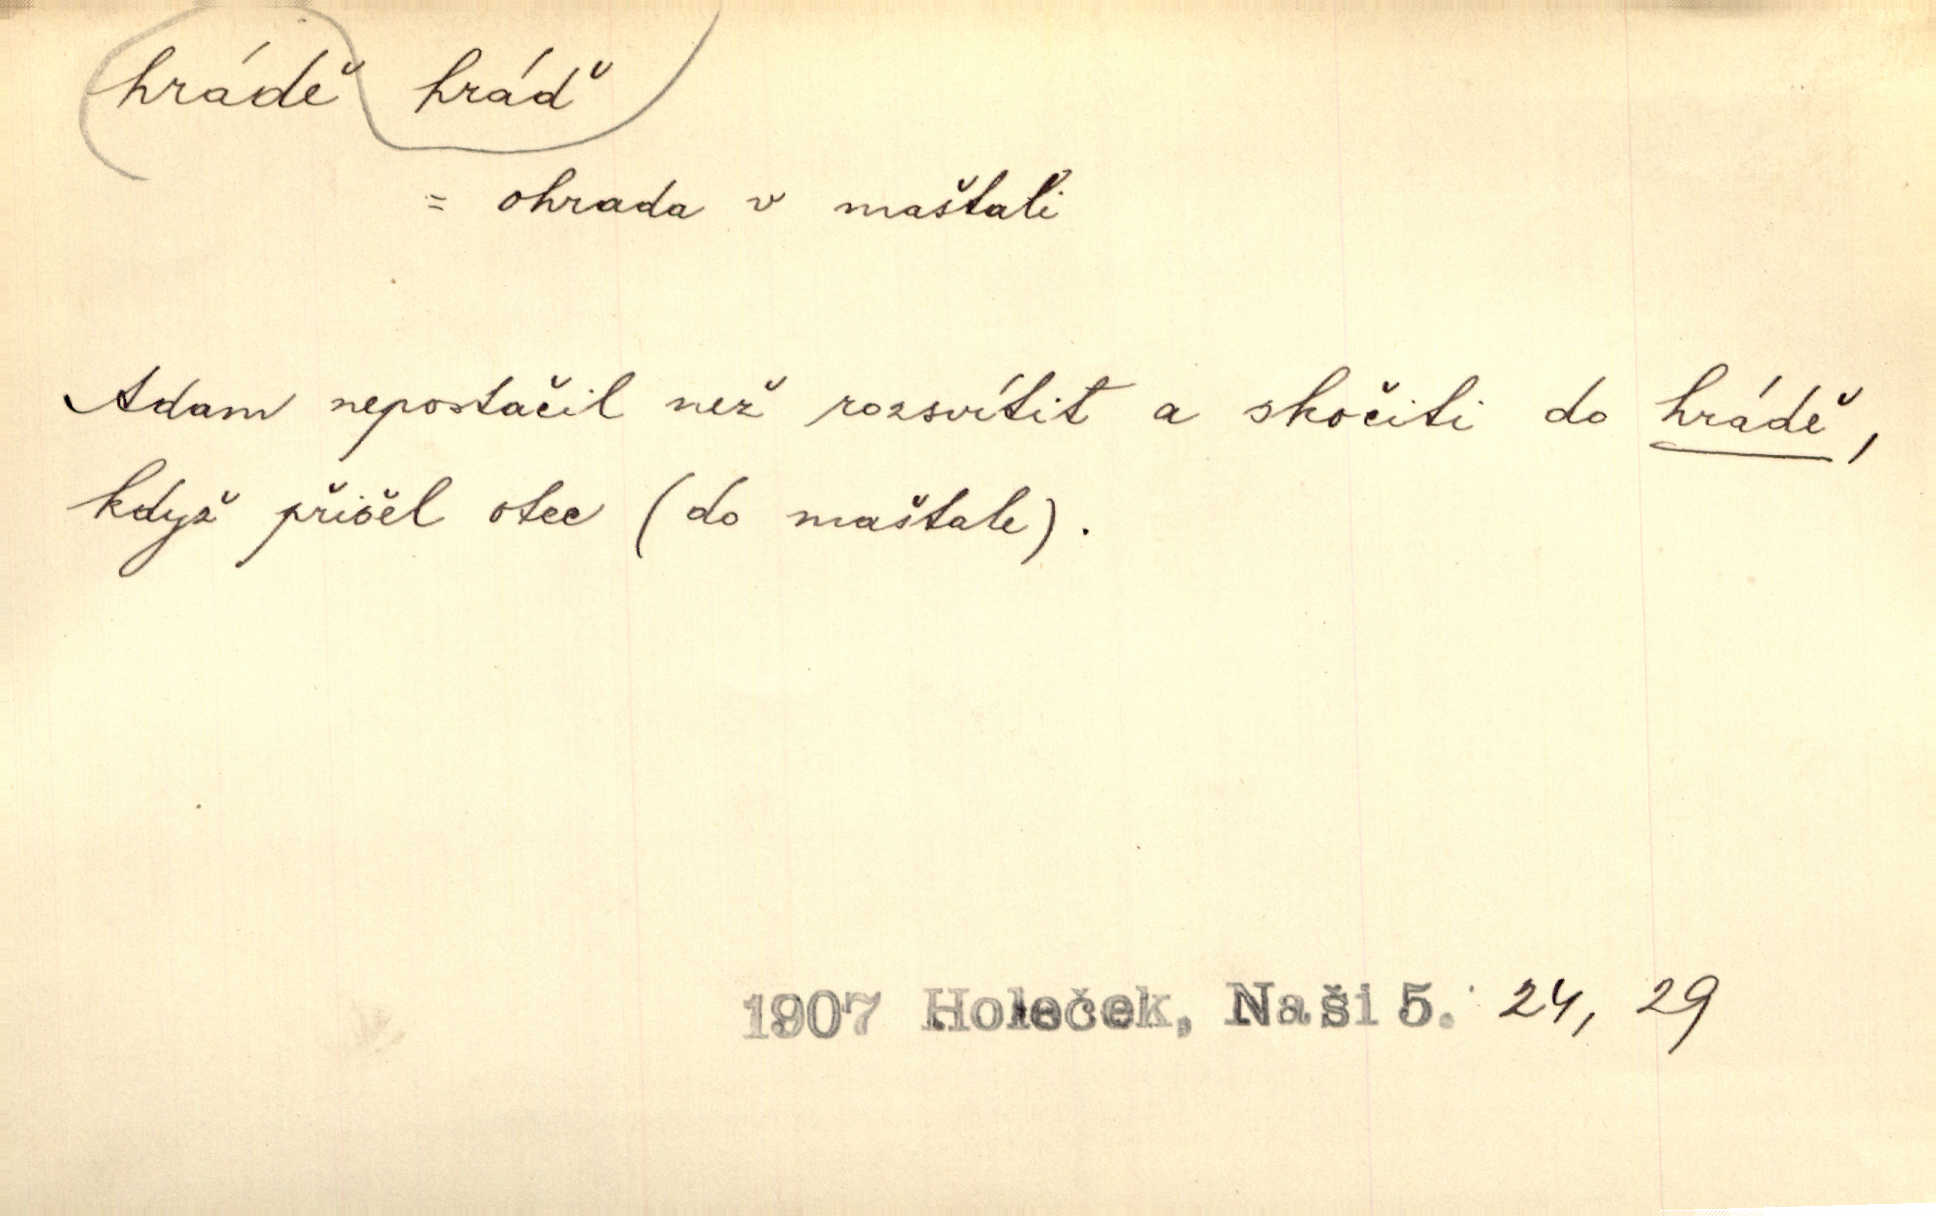 hrádě hráď
= ohrada v maštali
Adam nepostačil než rozsvítit a skočiti do hrádě,
když přišel otec (do maštale).
1907 Holeček, Naši 5. 24, 29